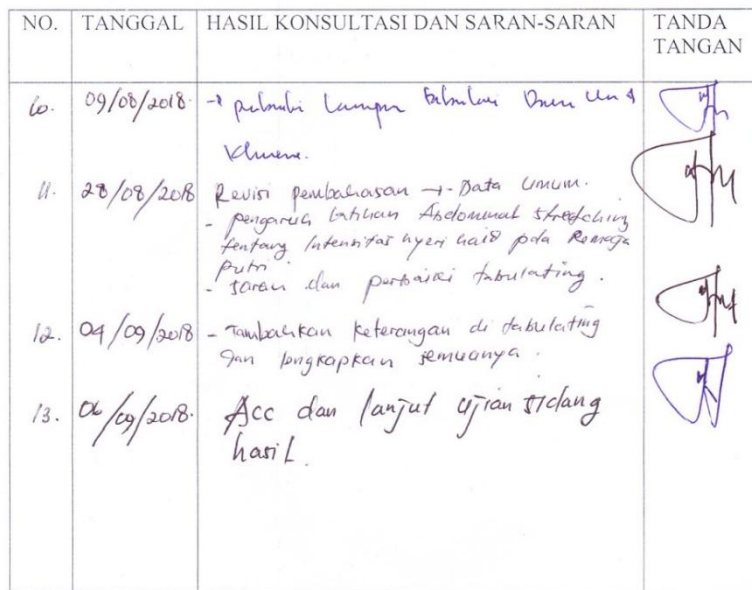 NO. TANGGAL HASIL KONSULTASI DAN SARAN-SARAN TANDA TANGAN
10. 09/08/2018. → perbaiki tabulasi
khusus.
11. 28/08/2018 Revisi pembahasan → Data Umum.
- pengaruh latihan Abdominal stretching
tentang Intensitas nyeri haid pada Remaja
putri
- saran dan perbaiki tabulating.
12. 04/09/2018 - Tambahkan keterangan di tabulating
dan lengkapkan semuanya.
13. 06/09/2018. Acc dan lanjut ujian sidang
hasil.